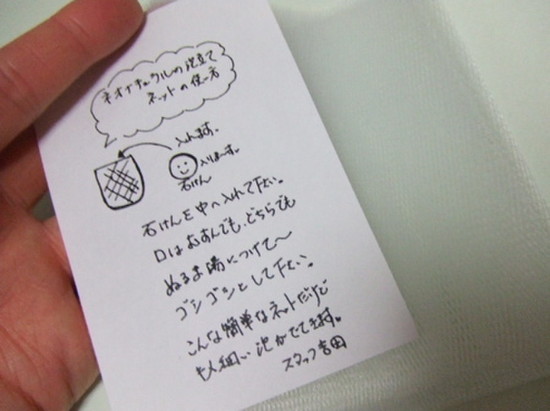 ネオナチュラルの泡立て
ネットの使い方
入れます。
入りまーす。
石けん
石けんを中へ入れて下さい。
口はむすんでも、どちらでも
ぬるま湯につけて〜
ゴシゴシとして下さい。
こんな簡単なネットだけど
細い泡がでてきます。
スタッフ吉田